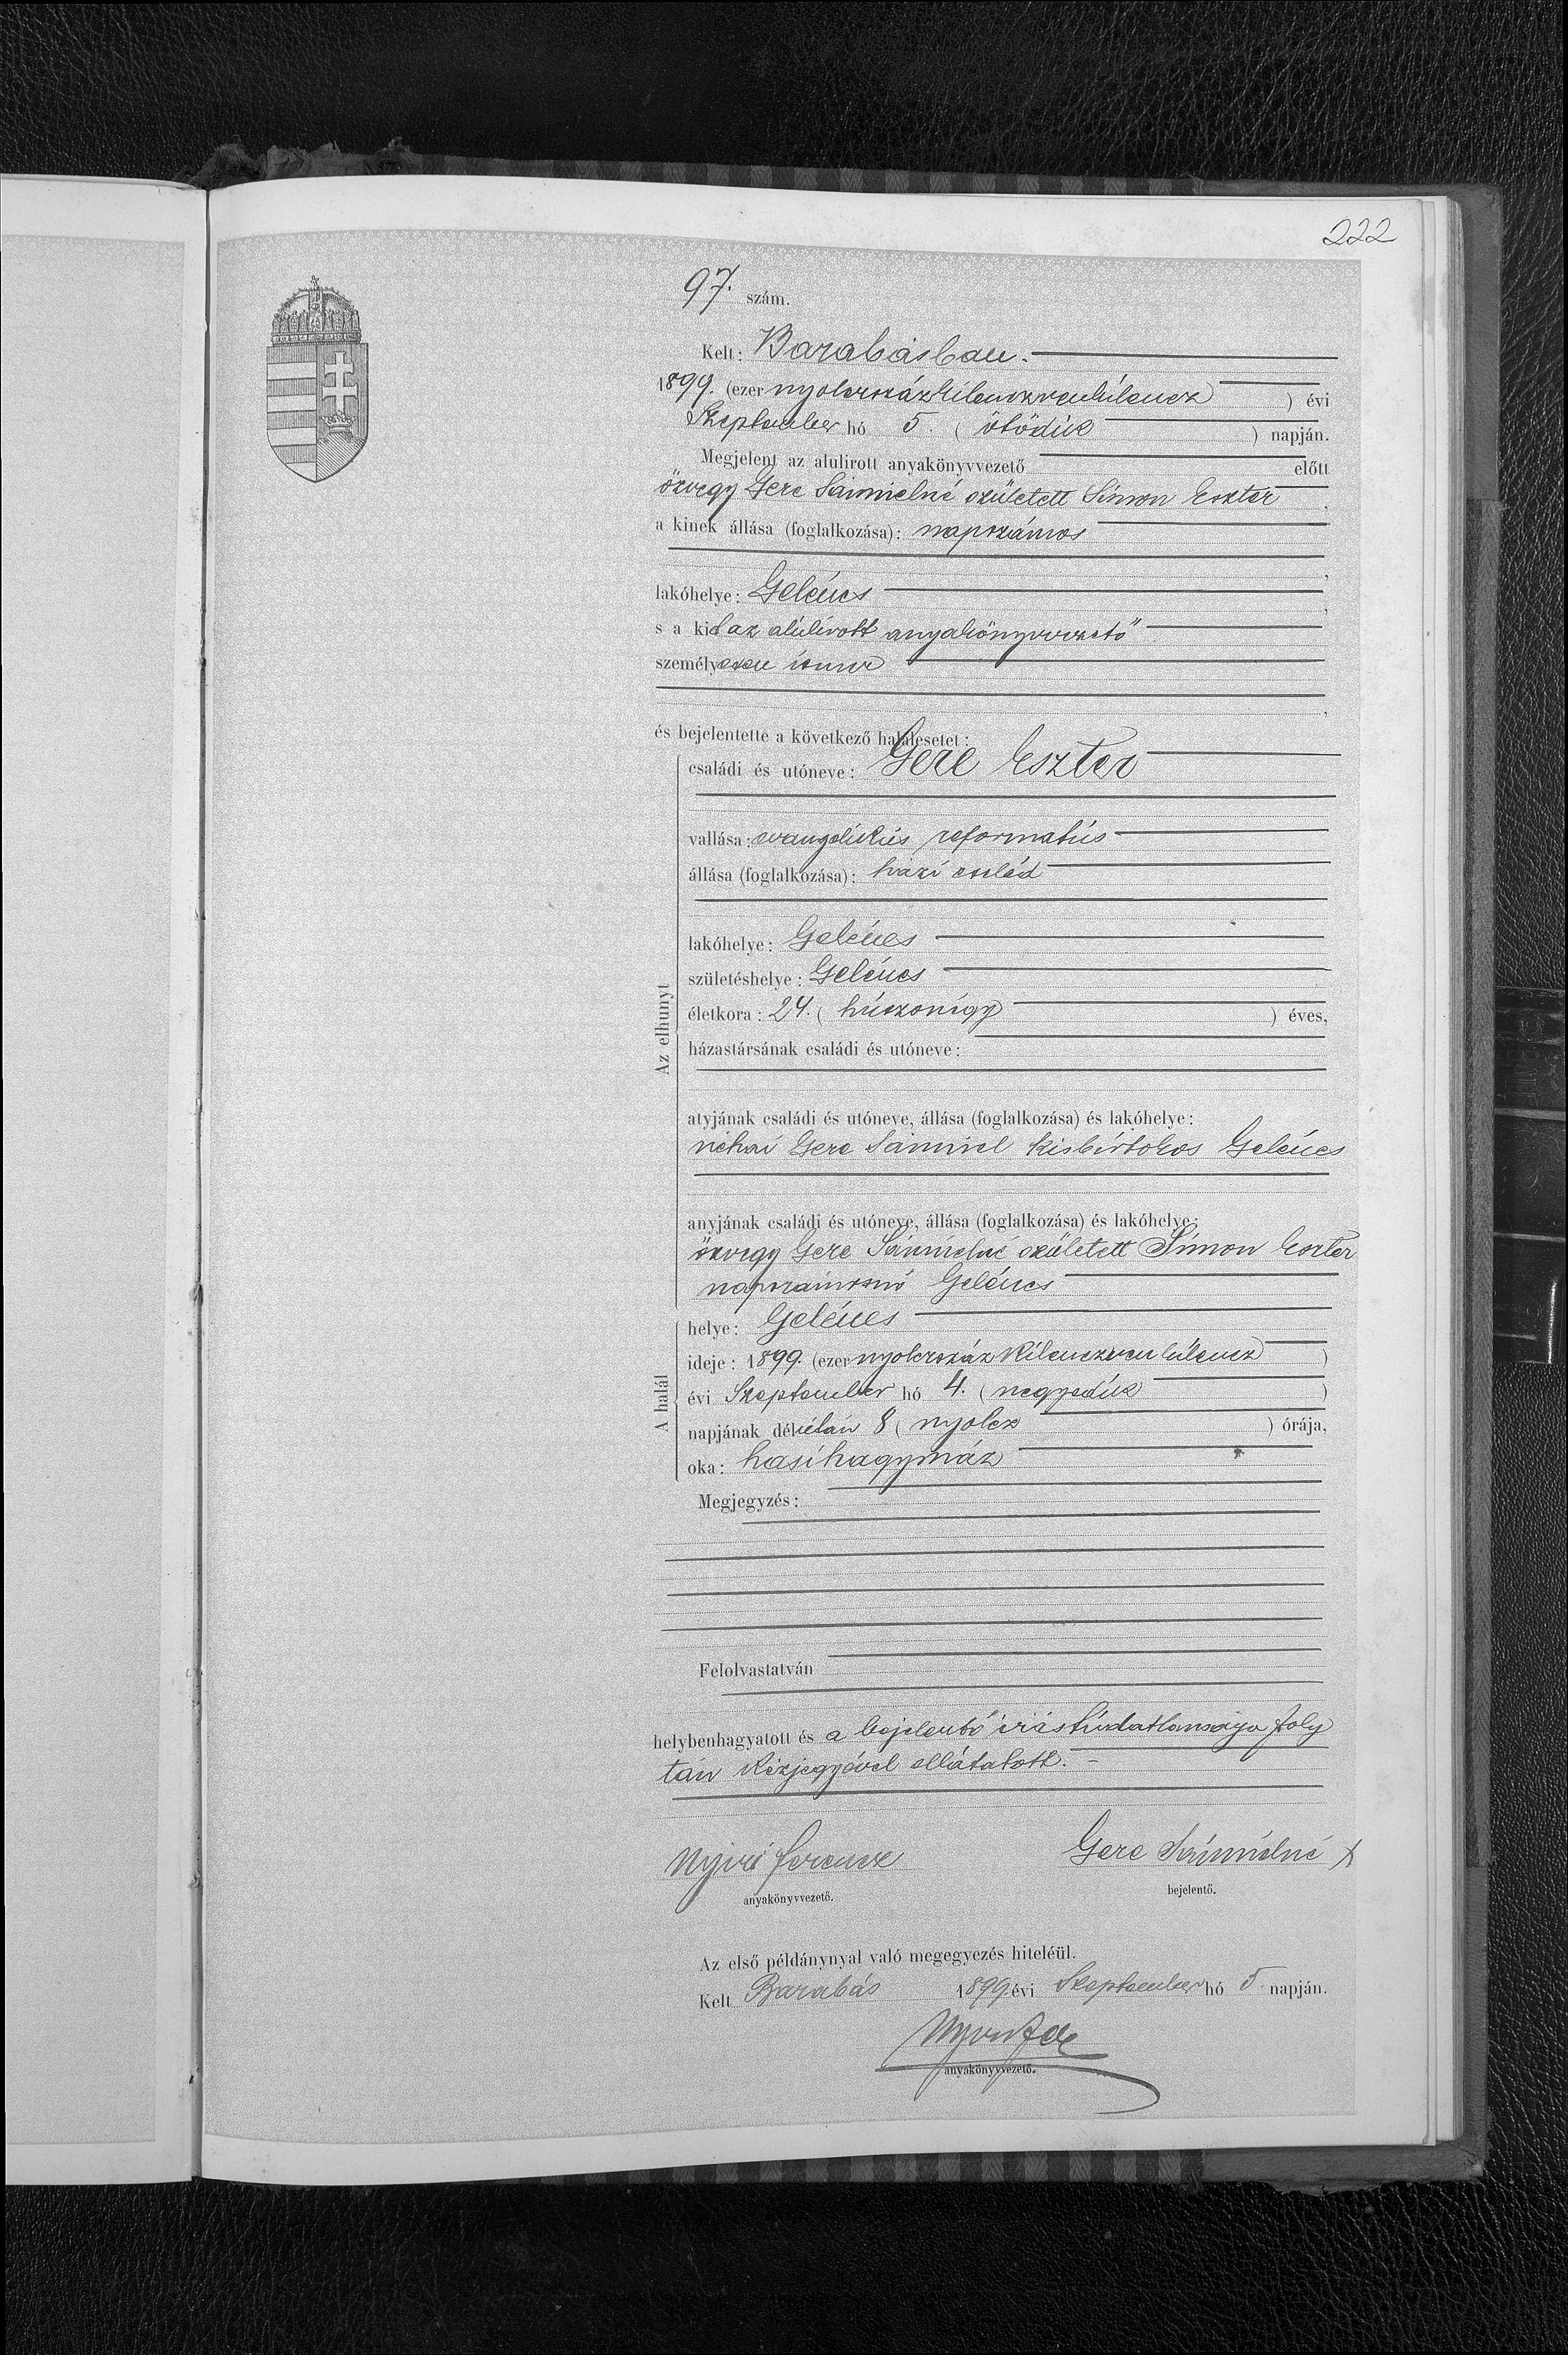 222
97. szám.
Kelt: Barabásban.
1899. (ezer nyolczszázkilenczvenkilencz) évi
Szeptember hó 5. (ötödik) napján.
Megjelent az alulirott anyakönyvvezető előtt
özvegy Gere Sámuelné született Simon Eszter,
a kinek állása (foglalkozása): napszámos
,
lakóhelye: Gelénes,
s a kit az alúlírott anyakönyvvezető
személyesen ismer
,
és bejelentette a következő halálesetet:
Az elhunyt
családi és utóneve: Gere Eszter
vallása: evangélikús reformatús
állása (foglalkozása): házi cseléd
lakóhelye: Gelénes
születéshelye: Gelénes
életkora: 24. (húszonégy) éves,
házastársának családi és utóneve:
atyjának családi és utóneve, állása (foglalkozása) és lakóhelye:
néhai Gere Sámúel kisbirtokos Gelénes
anyjának családi és utóneve, állása (foglalkozása) és lakóhelye:
özvegy Gere Sámúelné született Simon Eszter
napszámosnő Gelénes
A halál
helye: Gelénes
ideje: 1899. (ezer nyolczszáz kilenczvenkilencz)
évi Szeptember hó 4. (negyedik)
napjának délután 8 (nyolcz) órája,
oka: hasihagymáz
Megjegyzés:
Felolvastatván
helybenhagyatott és a bejelentő írástúdatlansága foly
tán kézjegyével ellátatott. –
Nyiri Ferencz
anyakönyvvezető.
Gere Sámúelné X
bejelentő.
Az első példánynyal való megegyezés hiteléül.
Kelt Barabás 1899. évi Szeptember hó 5. napján.
anyakönyvvezető.